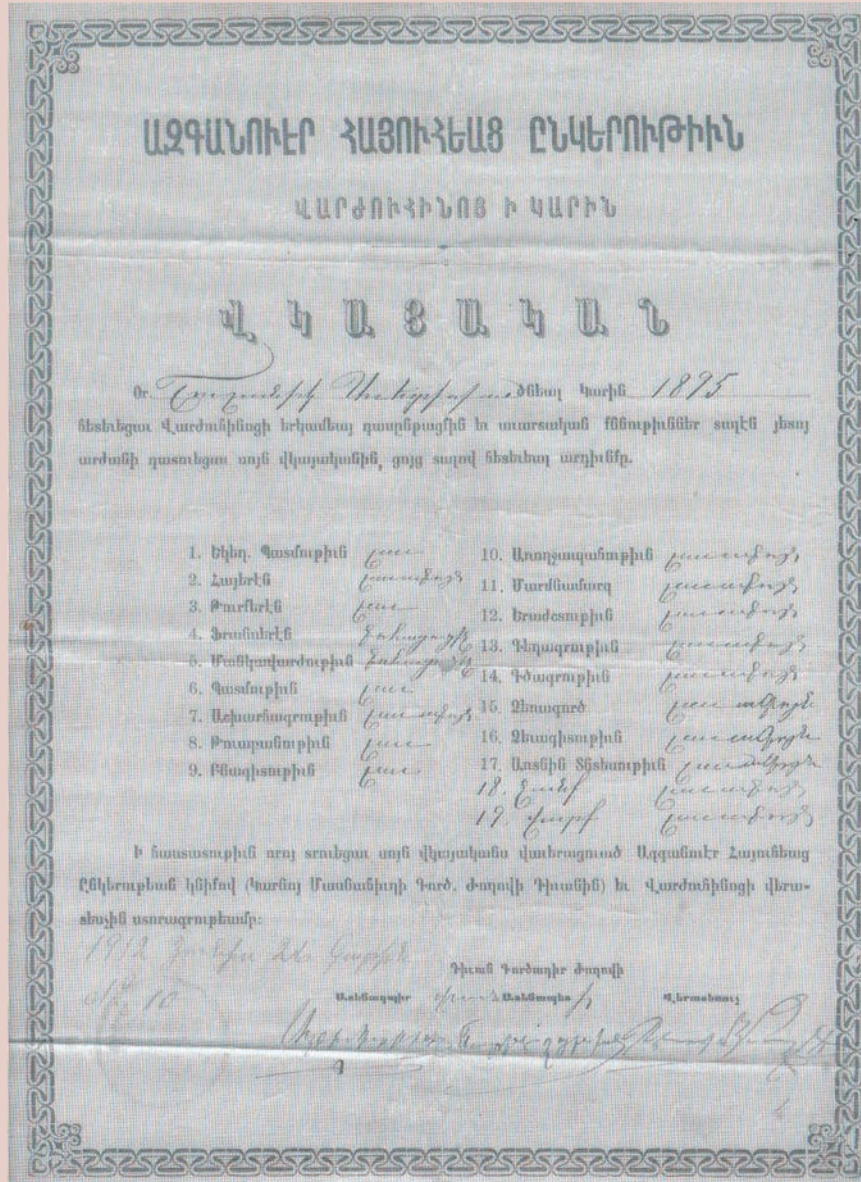 ԱԶԳԱՆՈՒԷՐ ՀԱՅՈՒՀԵԱՑ ԸՆԿԵՐՈՒԹԻՒՆ
ՎԱՐԺՈՒՀԻՆՈՑ Ի ԿԱՐԻՆ
ՎԿԱՅԱԿԱՆ
Օր. ծնեալ Կարին 1895
հետեւեցաւ Վարժուհինոցի երկամեայ դասընթացքին եւ աւարտական քննութիւններ տալէն յետոյ
արժանի դատուեցաւ սոյն վկայականին, ցոյց տալով հետեւեալ արդիւնքը.
1. Եկեղ. Պատմութիւն լաւ
2. Հայերէն լաւագոյն
3. Թուրքերէն լաւ
4. Ֆրանսերէն
5. Մանկավարժութիւն
6. Պատմութիւն լաւ
7. Աշխարհագրութիւն լաւագոյն
8. Թուաբանութիւն լաւ
9. Բնագիտութիւն լաւ
10. Առողջապահութիւն լաւագոյն
11. Մարմնամարզ լաւագոյն
12. Երաժշտութիւն լաւագոյն
13. Գեղագրութիւն լաւագոյն
14. Գծագրութիւն լաւագոյն
15. Ձեռագործ լաւագոյն
16. Ձեւագիտութիւն լաւագոյն
17. Առտնին Տնտեսութիւն լաւագոյն
18. Ջանք լաւագոյն
19. Վարք լաւագոյն
Ի հաստատութիւն որոյ տրուեցաւ սոյն վկայականս վաւերացուած Ազգանուէր Հայուհեաց
Ընկերութեան կնիքով (Կարնոյ Մասնաճիւղի Գործ. Ժողովի Դիւանին) եւ Վարժուհինոցի վերա-
տեսչին ստորագրութեամբ։
1912 Յունիս 24 Կարին
10
Դիւան Գործադիր Ժողովի
Ատենադպիր Ատենապետ Վերատեսուչ